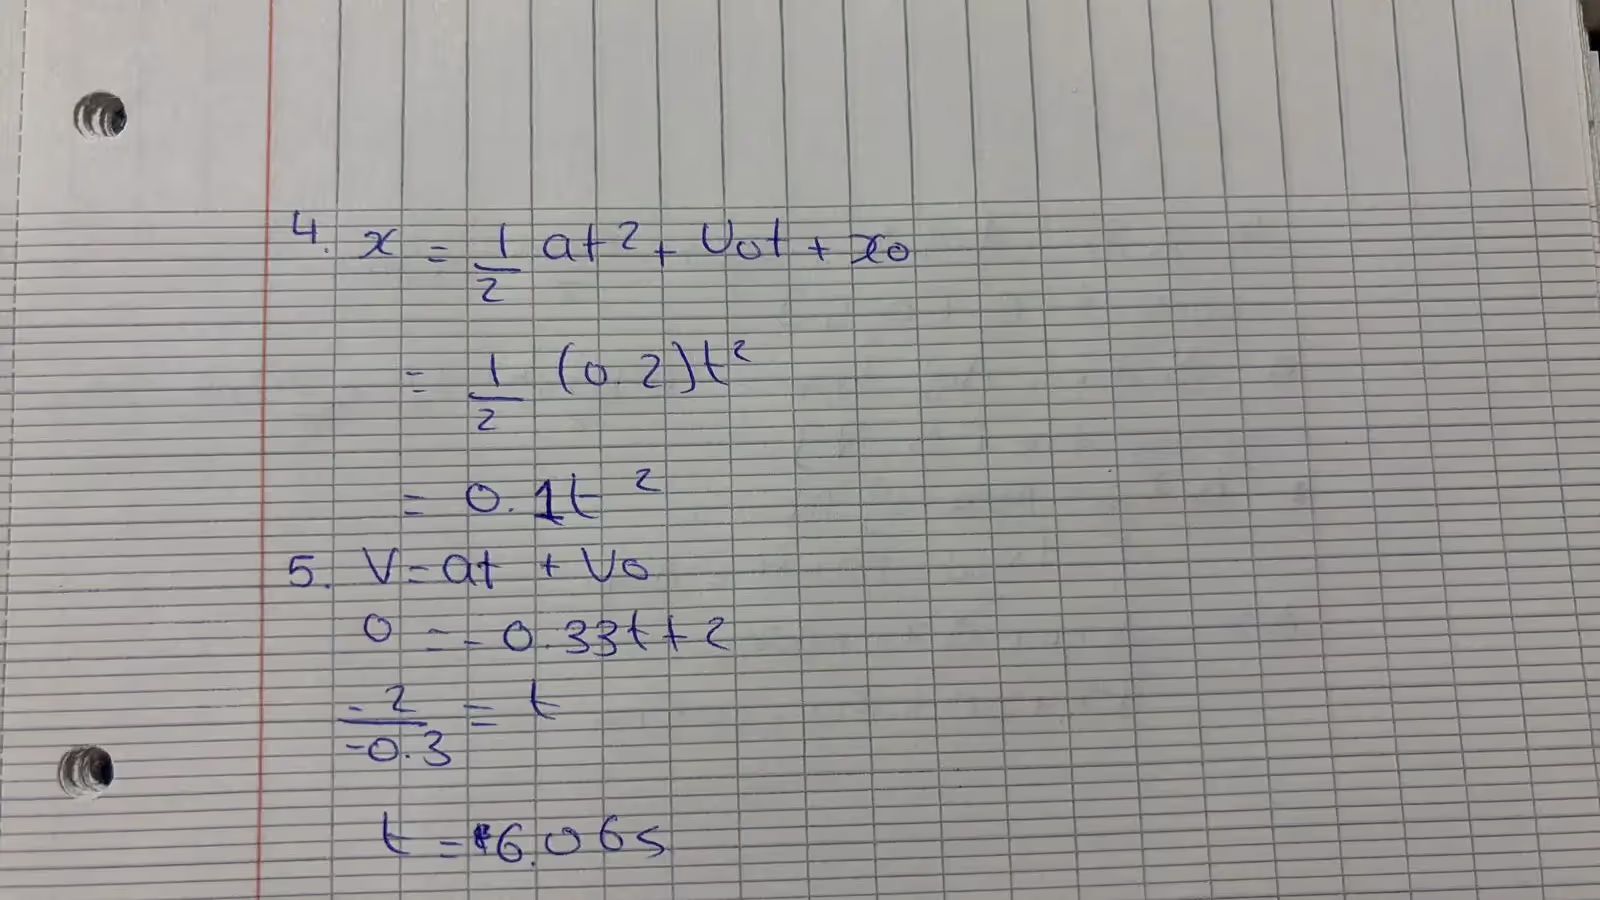 4. x = 1/2 at² + v₀t + x₀
= 1/2 (0.2)t²
= 0.1t²
5. V = at + V₀
0 = -0.33t + 2
-2/-0.3 = t
t = 6.06s